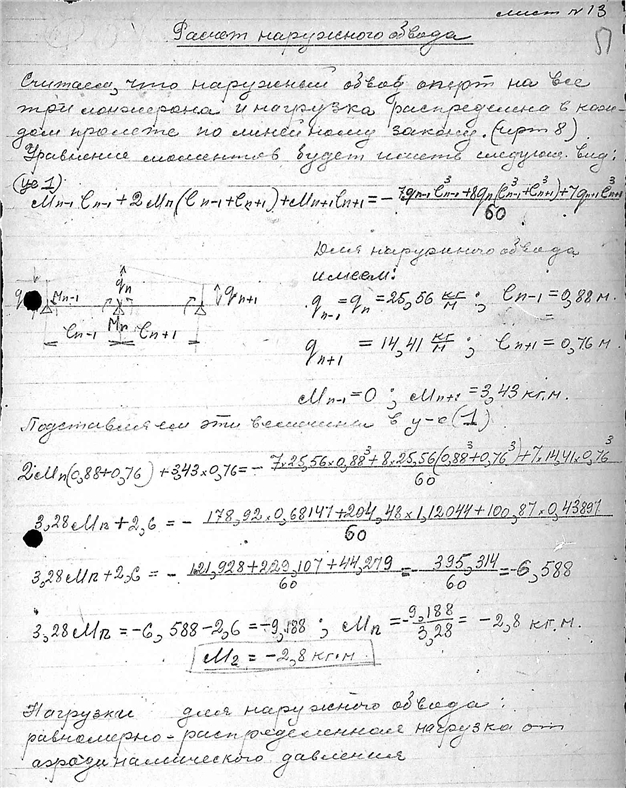 лист №13
Расчет наружного обвода
Считаем, что наружный обвод оперт на все
три лонжерона и нагрузка распределена в каж-
дом пролете по линейному закону. (черт 8)
Уравнение моментов будет иметь следующ. вид:
(ур 1)
Mn-1 ln-1 + 2Mn(ln-1+ln+1)+Mn+1 ln+1 = - 7qn-1 l³n-1+8qn(l³n-1+l³n+1)+7qn+1 l³n+1 / 60
Для наружного обвода
имеем:
qn-1 = qn = 25,56 кг/м ; ln-1 = 0,88 м.
qn+1 = 14,41 кг/м ; ln+1 = 0,76 м.
Mn-1 = 0 ; Mn+1 = 3,43 кг.м.
q Mn-1 qn qn+1
Mn
ln-1 ln+1
Подставляем эти величины в у-е (1)
2Mn(0,88+0,76) + 3,43×0,76 = - 7×25,56×0,88³+8×25,56(0,88³+0,76³)+7×14,41×0,76³ / 60
3,28Mn+2,6 = - 178,92×0,68147+204,48×1,12044+100,87×0,43897 / 60
3,28Mn+2,6 = - 121,928+229,107+44,279 / 60 = - 395,314 / 60 = -6,588
3,28Mn = -6,588-2,6 = -9,188 ; Mn = - 9,188 / 3,28 = -2,8 кг.м.
M2 = -2,8 кг.м
Нагрузки для наружного обвода:
равномерно-распределенная нагрузка от
аэродинамического давления